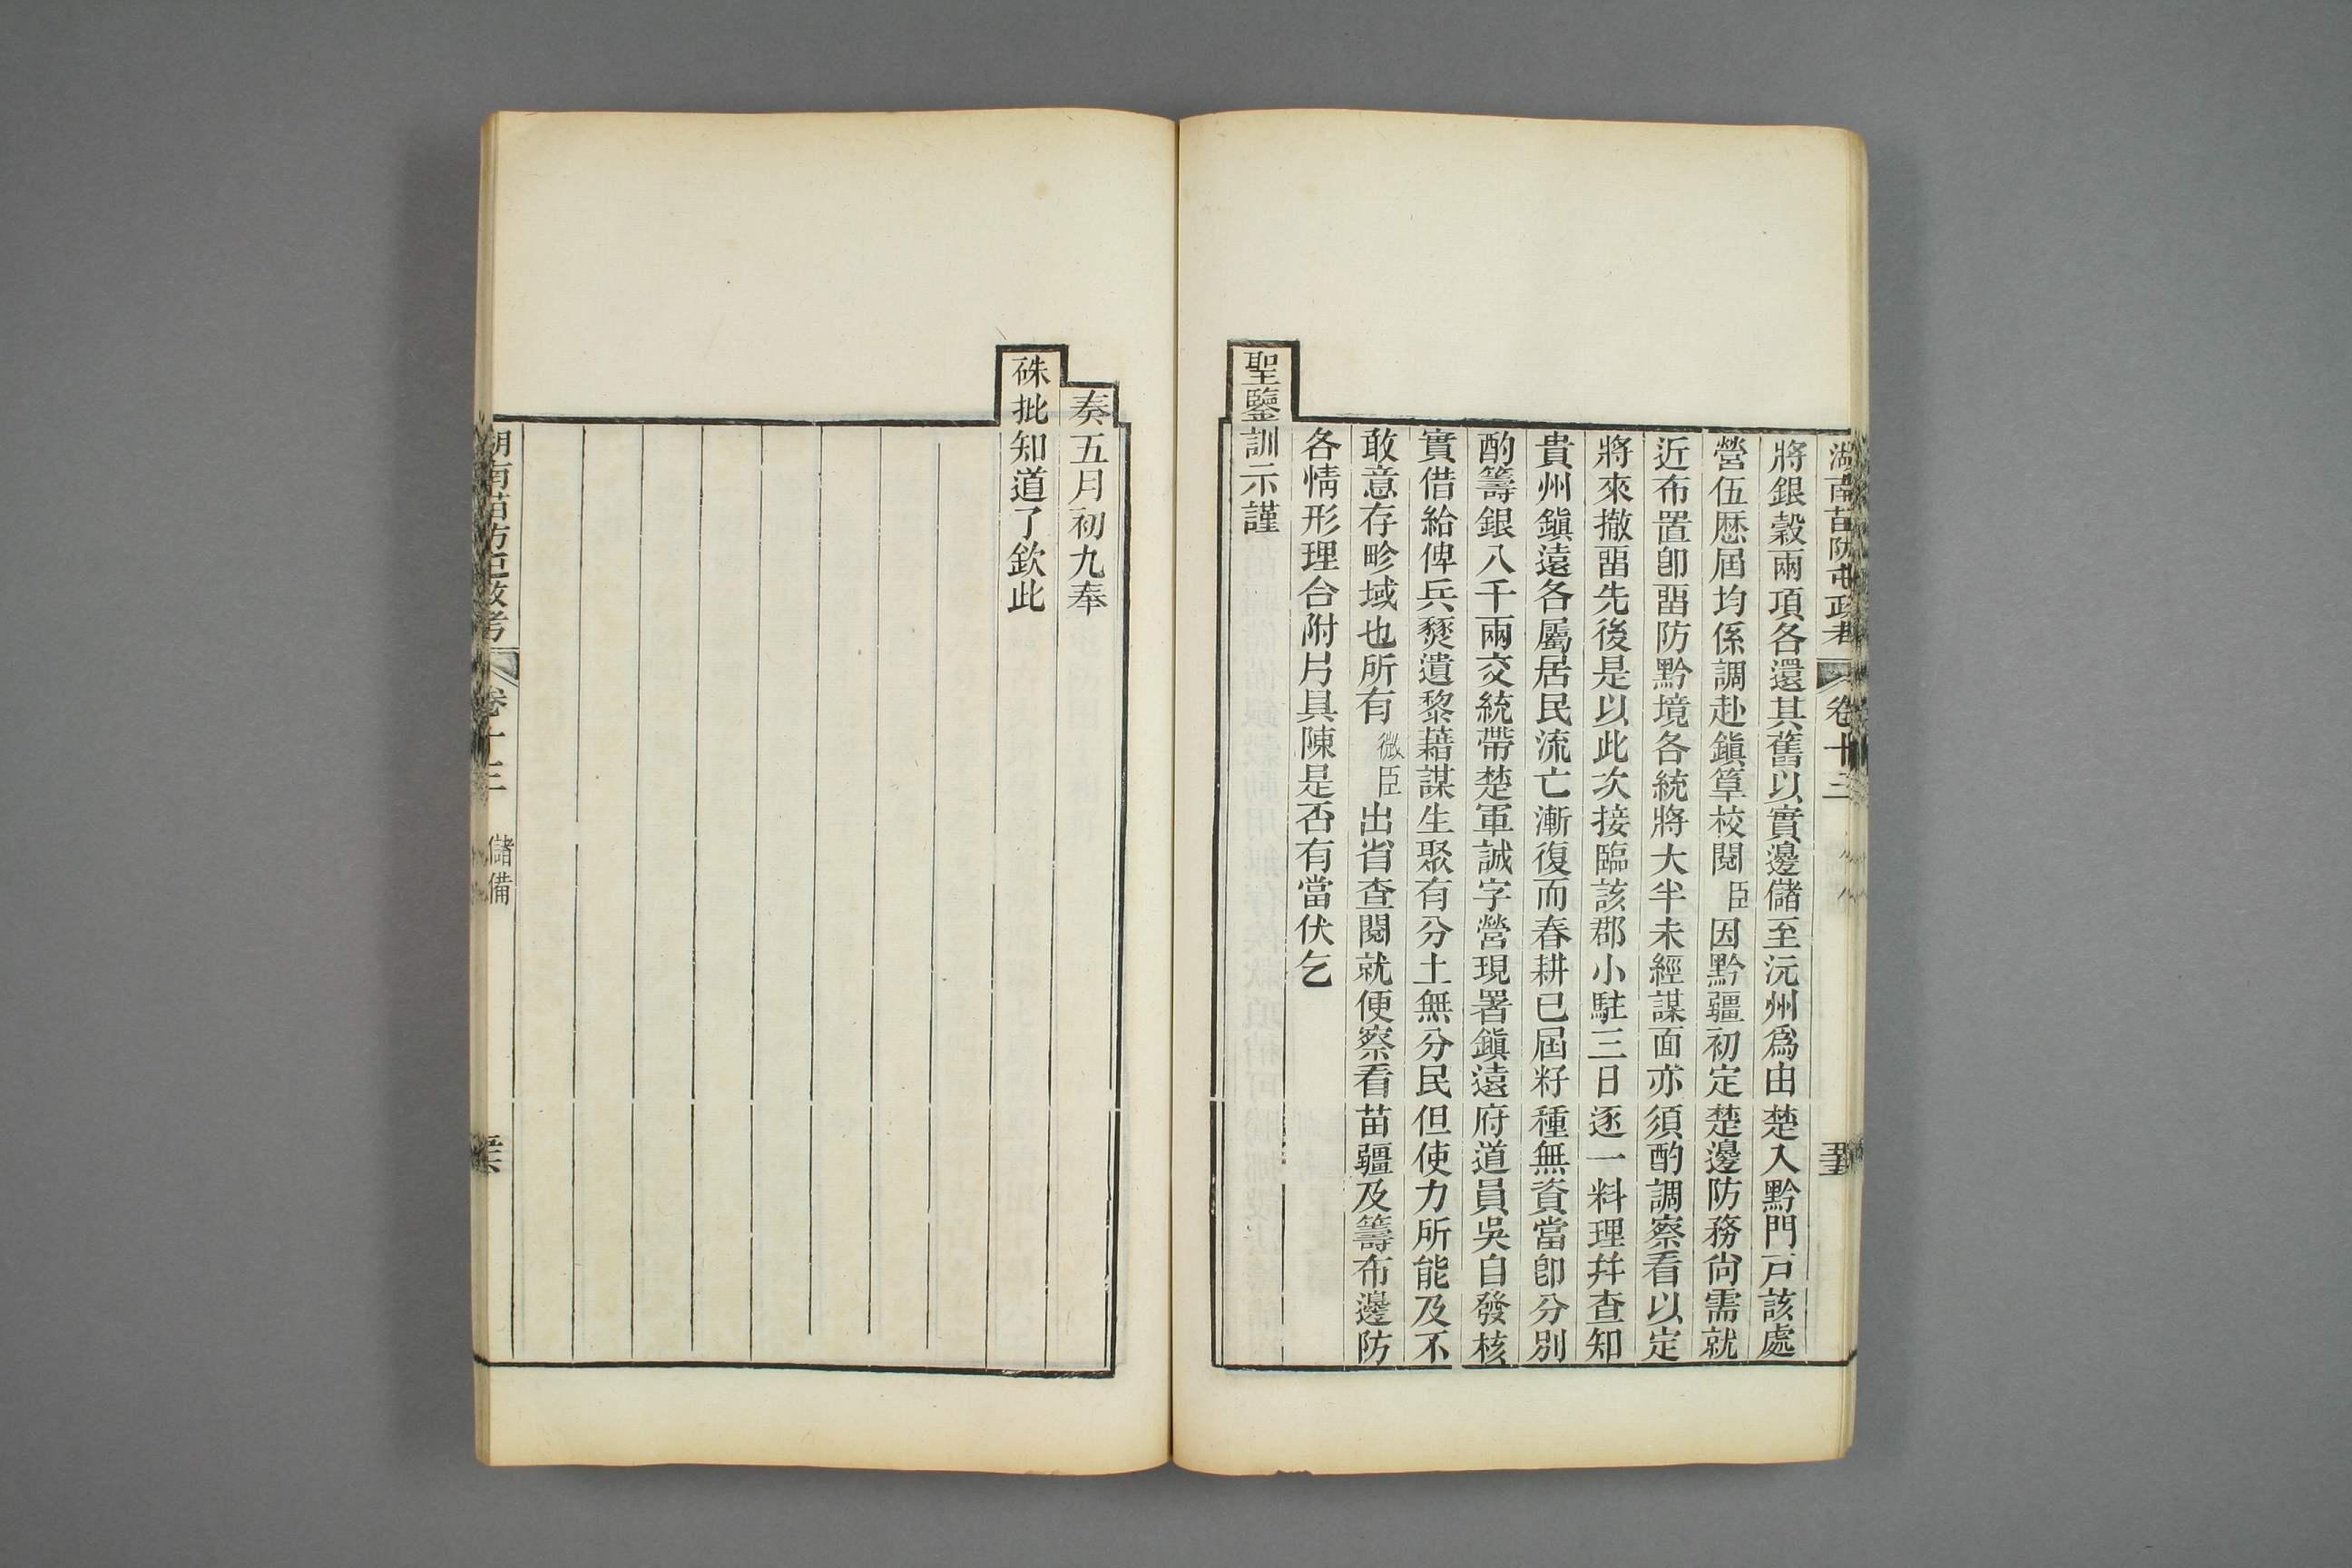 湖南苗防屯政考 卷十三
將銀穀兩項各還其舊以實邊儲至沅州爲由楚入黔門戸該處
營伍歷屆均係調赴鎭筸校閱臣因黔疆初定楚邊防務尙需就
近布置卽畱防黔境各統將大半未經謀面亦須酌調察看以定
將來撤畱先後是以此次接臨該郡小駐三日逐一料理幷查知
貴州鎭遠各屬居民流亡漸復而春耕已屆籽種無資當卽分別
酌籌銀八千兩交統帶楚軍誠字營現署鎭遠府道員吳自發核
實借給俾兵燹遺黎藉謀生聚有分土無分民但使力所能及不
敢意存畛域也所有微臣出省查閱就便察看苗疆及籌布邊防
各情形理合附片具陳是否有當伏乞
聖鑒訓示謹
奏五月初九奉
硃批知道了欽此
湖南苗防屯政考 卷十三 儲備